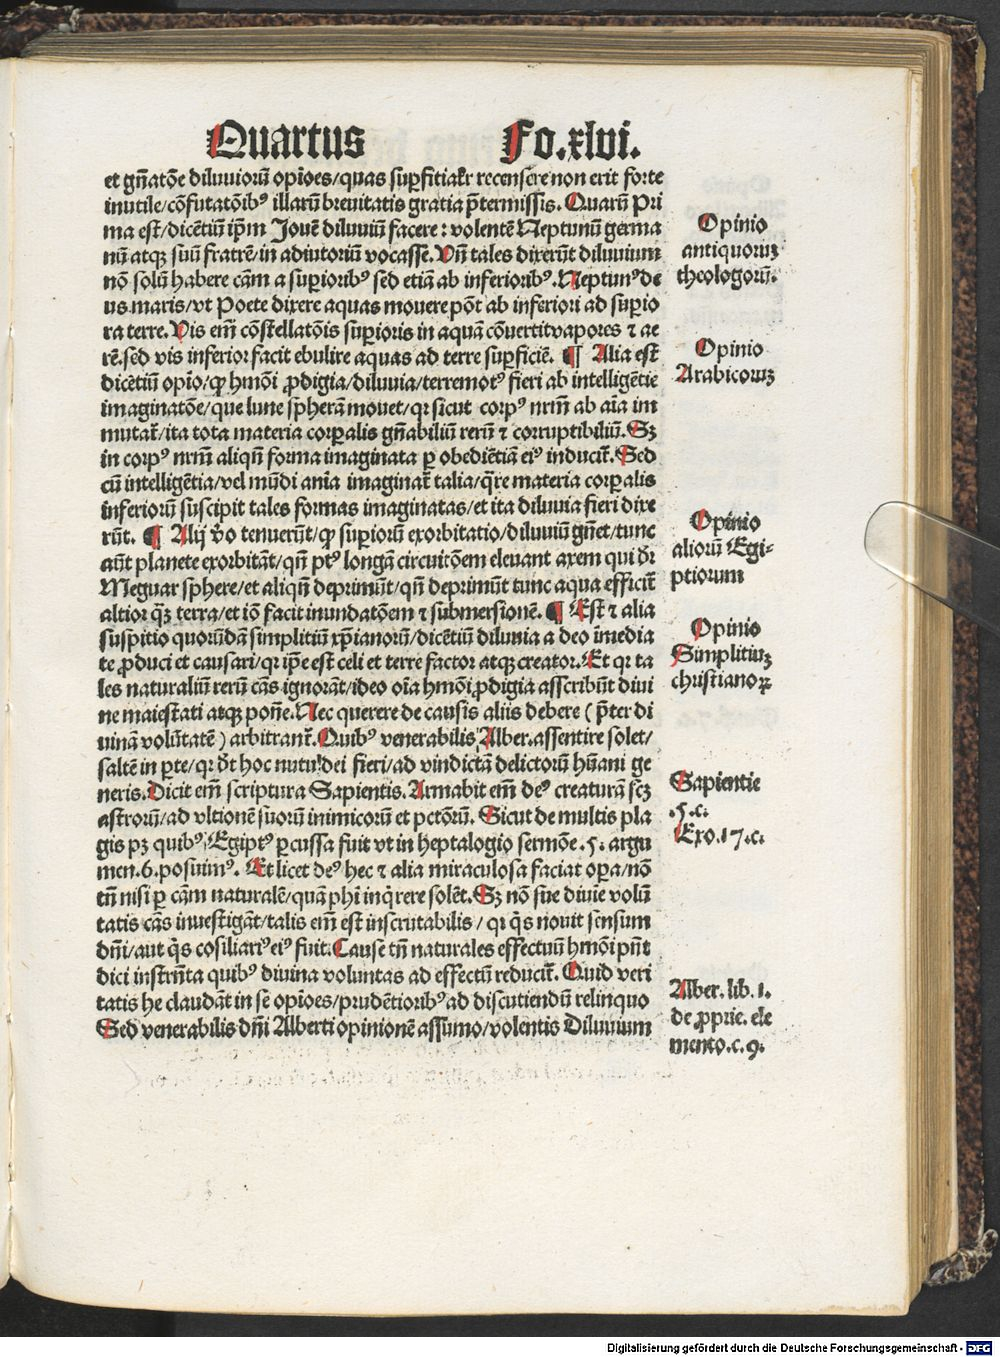 Quartus Fo.xlvi.
et gn̄atōe diluuiorū opiōes/quas suꝑfitialr̄ recensere non erit forte
inutile/cōfutatōibꝰ illarū breuitatis gratia p̄termissis. Quarū Pri
ma est/dicētiū ip̄m Jouē diluuiū facere: volentē Neptunū germa
nū atqꝫ suū fratrē/in adiutoriū vocasse. Vn̄ tales dixerūt diluuium
nō solū habere cām a suꝑioribꝰ sed etiā ab inferioribꝰ. Neptunꝰ de
us maris/vt Poete dixere aquas mouere pōt ab inferiori ad suꝑio
ra terre. Vis em̄ cōstellatōis suꝑioris in aquā cōuertit vapores ⁊ ae
rē. sed vis inferior facit ebulire aquas ad terre suꝑficiē. ¶ Alia est
dicētiū opiō/ꝙ hmōi ꝓdigia/diluuia/terremotꝰ fieri ab intelligētie
imaginatōe/que lune sp̄herā mouet/qꝛ sicut corpꝰ nrm̄ ab aīa im
mutat̄/ita tota materia corꝑalis gn̄abiliū rerū ⁊ corruptibiliū. Sꝫ
in corpꝰ nrm̄ aliqn̄ forma imaginata ꝑ obediētiā eiꝰ inducit̄. Sed
cū intelligētia/vel mūdi anīa imaginat̄ talia/q̄re materia corꝑalis
inferiorū suscipit tales formas imaginatas/et ita diluuia fieri dixe
rūt. ¶ Alij v̄o tenuerūt/ꝙ suꝑiorū exorbitatio/diluuiū gn̄et/tunc
aūt planete exorbitāt/qn̄ ptꝰ longā circuitōem eleuant axem qui dr̄
Meguar sphere/et aliqn̄ deprimūt/qn̄ deprimūt tunc aqua efficit̄
altior q̄ꝫ terra/et iō facit inundatōem ⁊ submersionē. ¶ Est ⁊ alia
suspitio quorūdā simplitiū xp̄ianorū/dicētiū diluuia a deo imedia
te ꝓduci et causari/qꝛ ip̄e est celi et terre factor atqꝫ creator. Et qꝛ ta
les naturaliū rerū cās ignorāt/ideo oīa hmōi ꝓdigia asscribūt diui
ne maiestati atqꝫ pōne. Nec querere de causis aliis debere (p̄ter di
uinā volūtatē) arbitrant̄. Quibꝰ venerabilis Alber. assentire solet/
saltē in ꝑte/qꝛ dt̄ hoc nutu dei fieri/ad vindictā delictorū hūani ge
neris. Dicit em̄ scriptura Sapientis. Armabit em̄ deꝰ creaturā scꝫ
astrorū/ad vltionē suorū inimicorū et pctōrū. Sicut de multis pla
gis pꝫ quibꝰ Egiptꝰ ꝑcussa fuit vt in heptalogio sermōe .5. argu
men.6. posuimꝰ. Et licet deꝰ hec ⁊ alia miraculosa faciat oꝑa/nō
tn̄ nisi ꝑ cām naturalē/quā phī inq̄rere solēt. Sꝫ nō sue diuīe volū
tatis cās inuestigāt/talis em̄ est inscrutabilis/qꝛ q̄s nouit sensum
dn̄i/aut q̄s cōsiliariꝰ eiꝰ fuit. Cause tn̄ naturales effectuū hmōi pn̄t
dici instrn̄ta quibꝰ diuina voluntas ad effectū reducit̄. Quid veri
tatis he claudāt in sē opiōes/prudētioribꝰ ad discutiendū relinquo
Sed venerabilis dn̄i Alberti opinionē assumo/volentis Diluuium
Opinio
antiquoruꝫ
theologorū.
Opinio
Arabicoruꝫ
Opinio
aliorū Egi-
ptiorum
Opinio
Simplitiuꝫ
christianoꝝ
Sapientie
.5.c.
Exo.17.c.
Alber. lib. 1.
de ꝓprie. ele
mento.c.9.
Digitalisierung gefördert durch die Deutsche Forschungsgemeinschaft - DFG